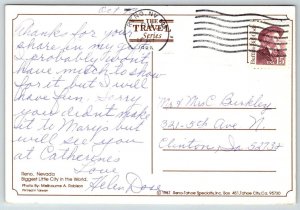 Oct
RENO, NV
THE
TRAVEL
Series
Thanks for you
share in my gift
I probably wont
have much to show
for it but I will
have fun. Sorry
you didnt make
it to Marys but
will see you
at Catherines
Love
Helen Doss
Mr & Mrs C. Burkley
321-5th Ave N.
Clinton, Ia 52732
Reno, Nevada
Biggest Little City in the World.
Photo By: Melbourne A. Robison
© 1987 Reno-Tahoe Specialty, Inc. Box 451, Tahoe City, Ca. 95730